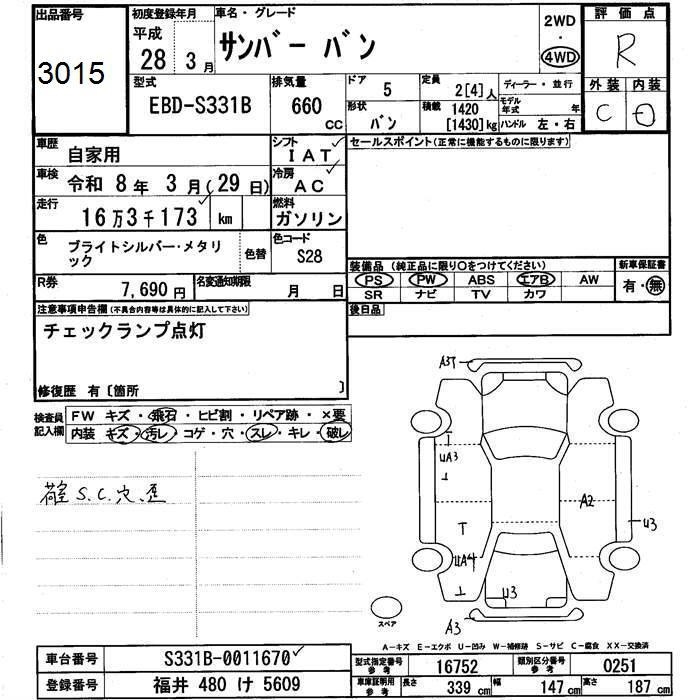 出品番号
3015
初度登録年月
平成
28年 3月
車名・グレード
サンバー バン
2WD
・
4WD
評価点
R
外装 内装
C D
型式
EBD-S331B
排気量
660
cc
ドア
5
形状
バン
定員
2[4]人
積載 1420
[1430]kg
ディーラー・並行
モデル年式 年
ハンドル 左・右
車歴
自家用
シフト
IAT
車検
令和 8年 3月(29日)
冷房
AC
走行
16万3千173 km
燃料
ガソリン
色
ブライトシルバー・メタリ
ック
色替
色コード
S28
R券
7,690円
名変通知期限
月 日
セールスポイント(正常に機能するものに限ります)
装備品(純正品に限り○をつけてください)
PS PW ABS エアB AW
SR ナビ TV カワ
新車保証書
有・無
後日品
注意事項申告欄(不具合内容等は具体的に記入して下さい)
チェックランプ点灯
修復歴 有〔箇所 〕
検査員
記入欄
FW キズ・飛石・ヒビ割・リペア跡・×要
内装 キズ・汚レ・コゲ・穴・スレ・キレ・破レ
荷室 S.C.穴、歪
A3T
UA3
⊥
A2
T
U3
UA4
⊥
U3
A3
スペア
A-キズ E-エクボ U-凹み W-補修跡 S-サビ C-腐食 XX-交換済
車台番号 S331B-0011670
登録番号 福井 480 け 5609
型式指定番号
参考
16752
類別区分番号
参考
0251
車庫証明用
参考
長さ 339 cm 幅 147 cm 高さ 187 cm